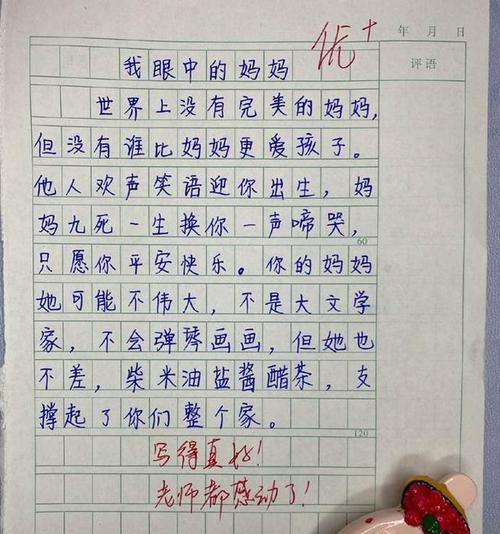 优+
年 月 日
评语
我眼中的妈妈
世界上没有完美的妈妈,
但没有谁比妈妈更爱孩子。
他人欢声笑语迎你出生,妈
妈九死一生换你一声啼哭,
60
只愿你平安快乐。你的妈妈
她可能不伟大,不是大文学
家,不会弹琴画画,但她也
不差,柴米油盐酱醋茶,支
撑起了你们整个家。
120
写得真好!
老师都感动了!